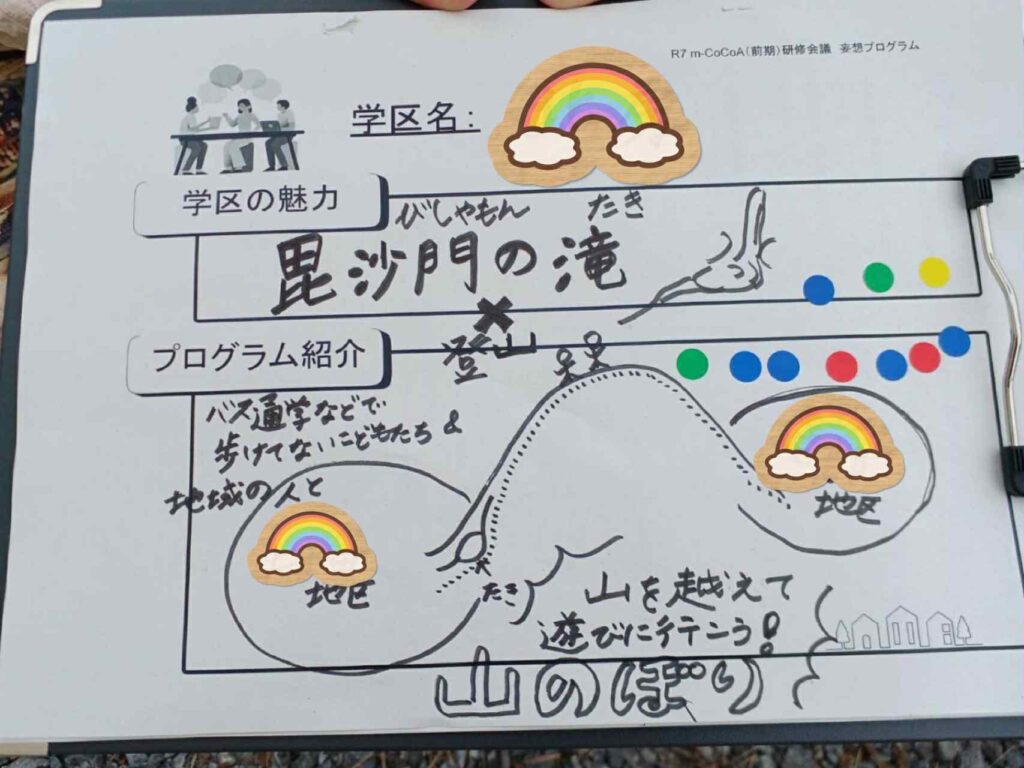 R7 m-CoCoA(前期)研修会議 妄想プログラム
学区名:
学区の魅力
びしゃもん たき
毘沙門の滝
×
登山
プログラム紹介
バス通学などで
歩けてないこどもたち &
地域の人と
地区
地区
たき
山を越えて
遊びに行こう!
山のぼり